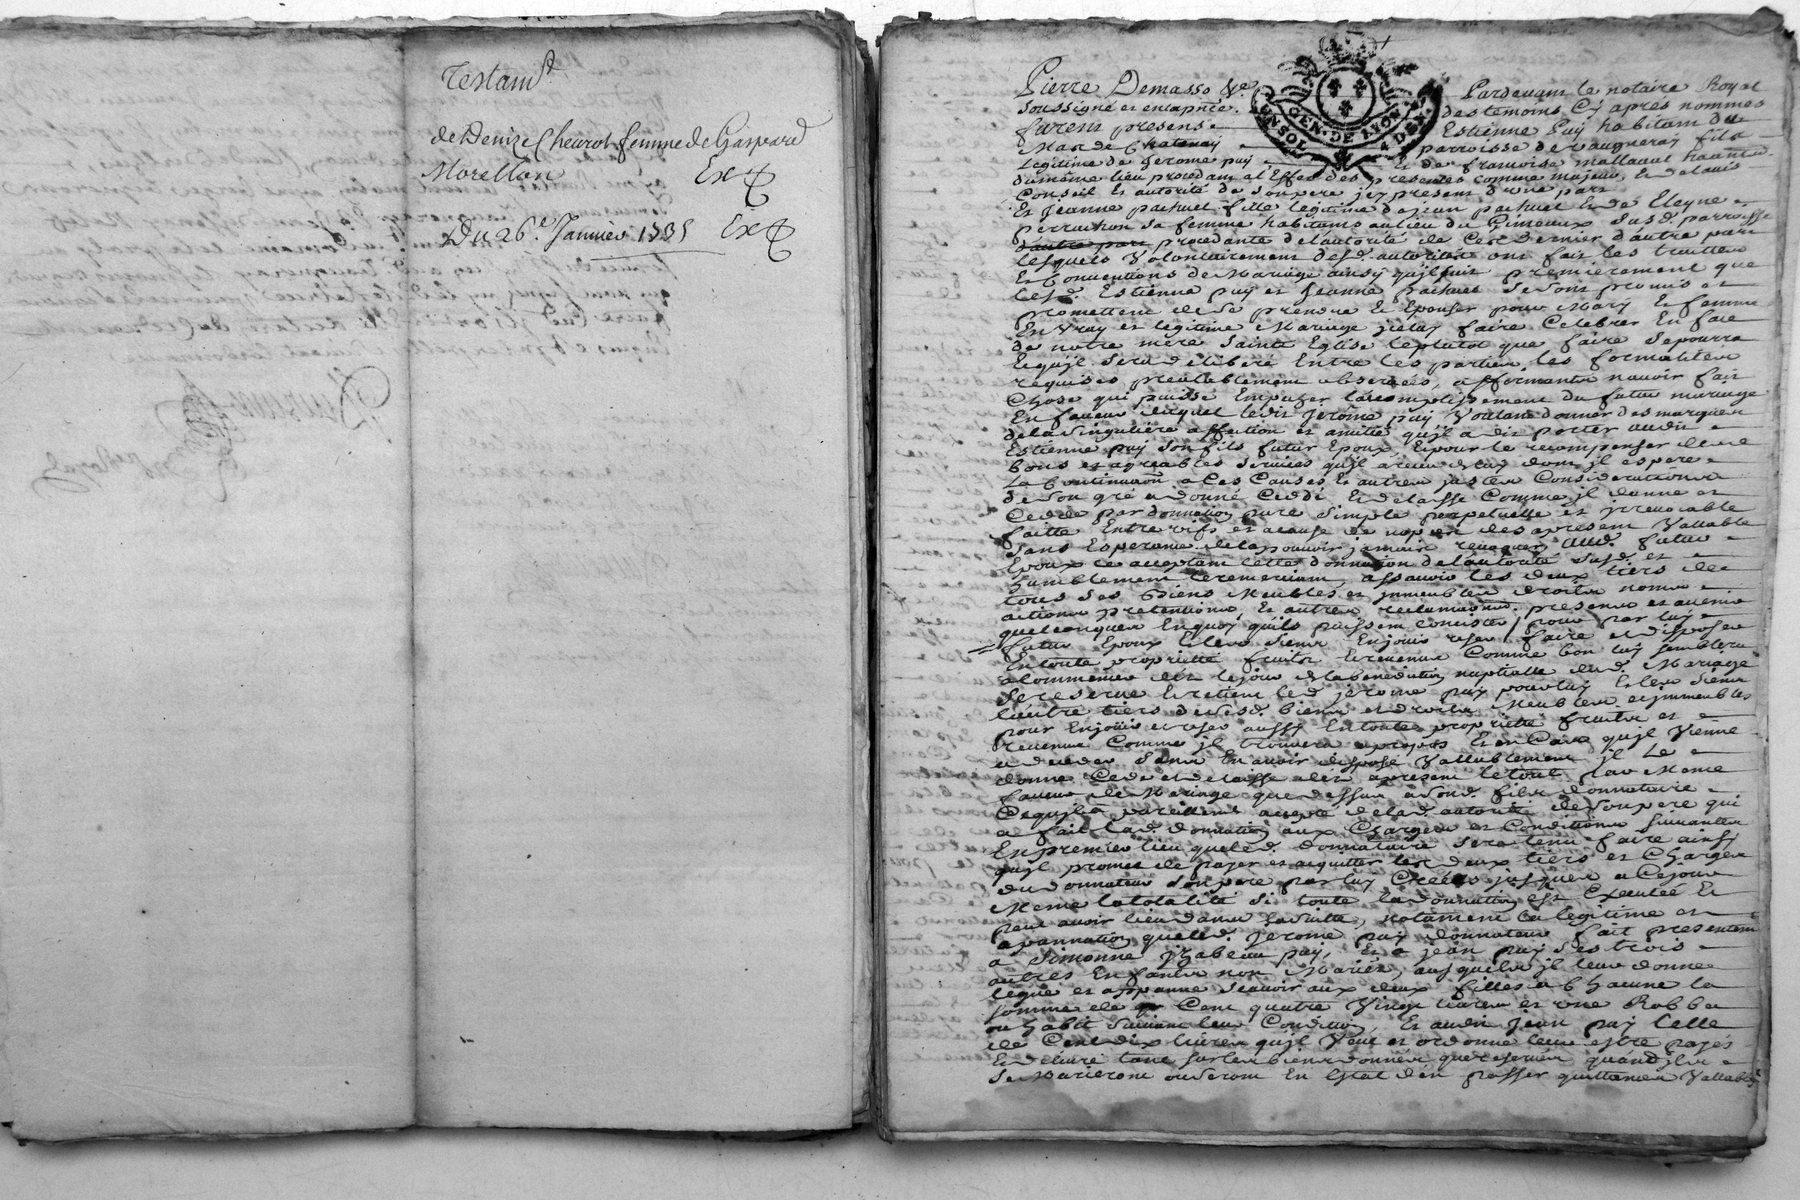 Testamt
de Denize Cheurot femme de Gaspard
Morellon Ex
Du 26e. Janvier 1735 Ex
GEN. DE LYON
Pierre Demasso &e. Pardevant le notaire Royal
soussigné et en la pnce. des temoins cy apres nommes
furent presens Estienne Puy habitant du
Mas de Chatenay parroisse de Vaugneray fils
legitime de Jerome puy Et de francoise mallaval habitant
du meme lieu procedant a l'Effet des presentes comme majeur, Et de lavis
Conseil Et autorité de son pere jcy present d'une part
Et Jeanne pachuel fille legitime de jean pachuel Et de Eleyne
perrachon sa femme habitants au lieu du Pimeaux susd. parroisse
procedante de l'autorité de ce dernier d'autre part
lesquels Volontairement desd. autorités ont fait les traittés
Et Conventions de Mariage ainsy quil suit premierement que
lesd. Estienne puy et Jeanne pachuel se sont promis et
promettent de se prendre Et Epouser pour Mary Et femme
En vray et legitime Mariage jceluy faire Celebrer En face
de notre mere Sainte Eglise le plutot que faire se pourra
Et quil sera deliberé Entre les parties, les formalités
requises prealablement observées, affirmants n'avoir fait
Chose qui puisse Empecher laccomplissement du futur mariage
En faveur duquel ledit Jerôme puy Voulant donner des marques
de la singuliere affection et amitié qu'jl a dit porter audit
Estienne puy son fils futur Epoux, Et pour le recompenser de
bons et agreables services qu'jl a receu de luy dont jl espere
la Continuation a ces Causes Et autres justes Considerations
de son gré a donné Ceddé Et delaissé Comme jl donne et
Cedde par donnation pure simple perpetuelle et jrrevocable
faitte Entre vifs et a cause de nopces des apresent Vallable
sans Esperance de la pouvoir jamais revoquer aud. futur
Epoux ce acceptant cette donnation de l'autorité susd. et
humblement le remerciant, assavoir les deux tiers de
tous ses biens Meubles et jmmeubles droits noms
actions pretentions, Et autres reclamations presents et avenir
quelconques En quoy quils puissent consister, pour par luy
futur Epoux Et les siens En jouir user faire et disposer
En toute proprieté fruits Et revenus Comme bon luy semblera
a Commencer des le jour de la benediction nuptialle dud. Mariage
Se reserve Et retient led. jerome puy pour luy Et les siens
l'autre tiers de sesd. biens et droits Meubles et jmmeubles
pour En joüir et user aussy En toute proprieté fruits et
revenus Comme jl trouvera apropos Et en Cas qu'jl Vienne
a deceder sans En avoir disposé Vallablement jl Le
donne Cede et delaisse des apresent le tout par Meme
faveur de Mariage que dessus a sond. fils donnataire
Ce qu'jl a pareillement accepté de lad. autorité de son pere qui
a fait lad. donnation aux Charges et Conditions suivantes
En premier lieu que led. donnataire sera tenu faire ainsy
quil promet de payer et acquitter les deux tiers et Charges
du donnateur son pere par luy Créées jusques a Ce jour
Meme la totalité si toute la donnation est Executée Et
peut avoir lieu dans la suitte, notament la legitime et
apannation que led. Jerome puy donnateur fait presentement
a Simonne jzabeau puy, Et a jean puy ses trois
autres Enfants non Mariés, ausquels jl leur donne
legue et appanne sçavoir aux deux filles a Chacune la
somme de Cent quatre Vingt livres et une Robbe
ou habit suivant leur Condition, Et audit jean puy Celle
de Cent dix livres qu'jl Veut et ordonne leur estre payés
Et delivré tant sur les biens donnés que reservés quand jls
se Marieront ou seront En Estat d'en passer quittance Vallable